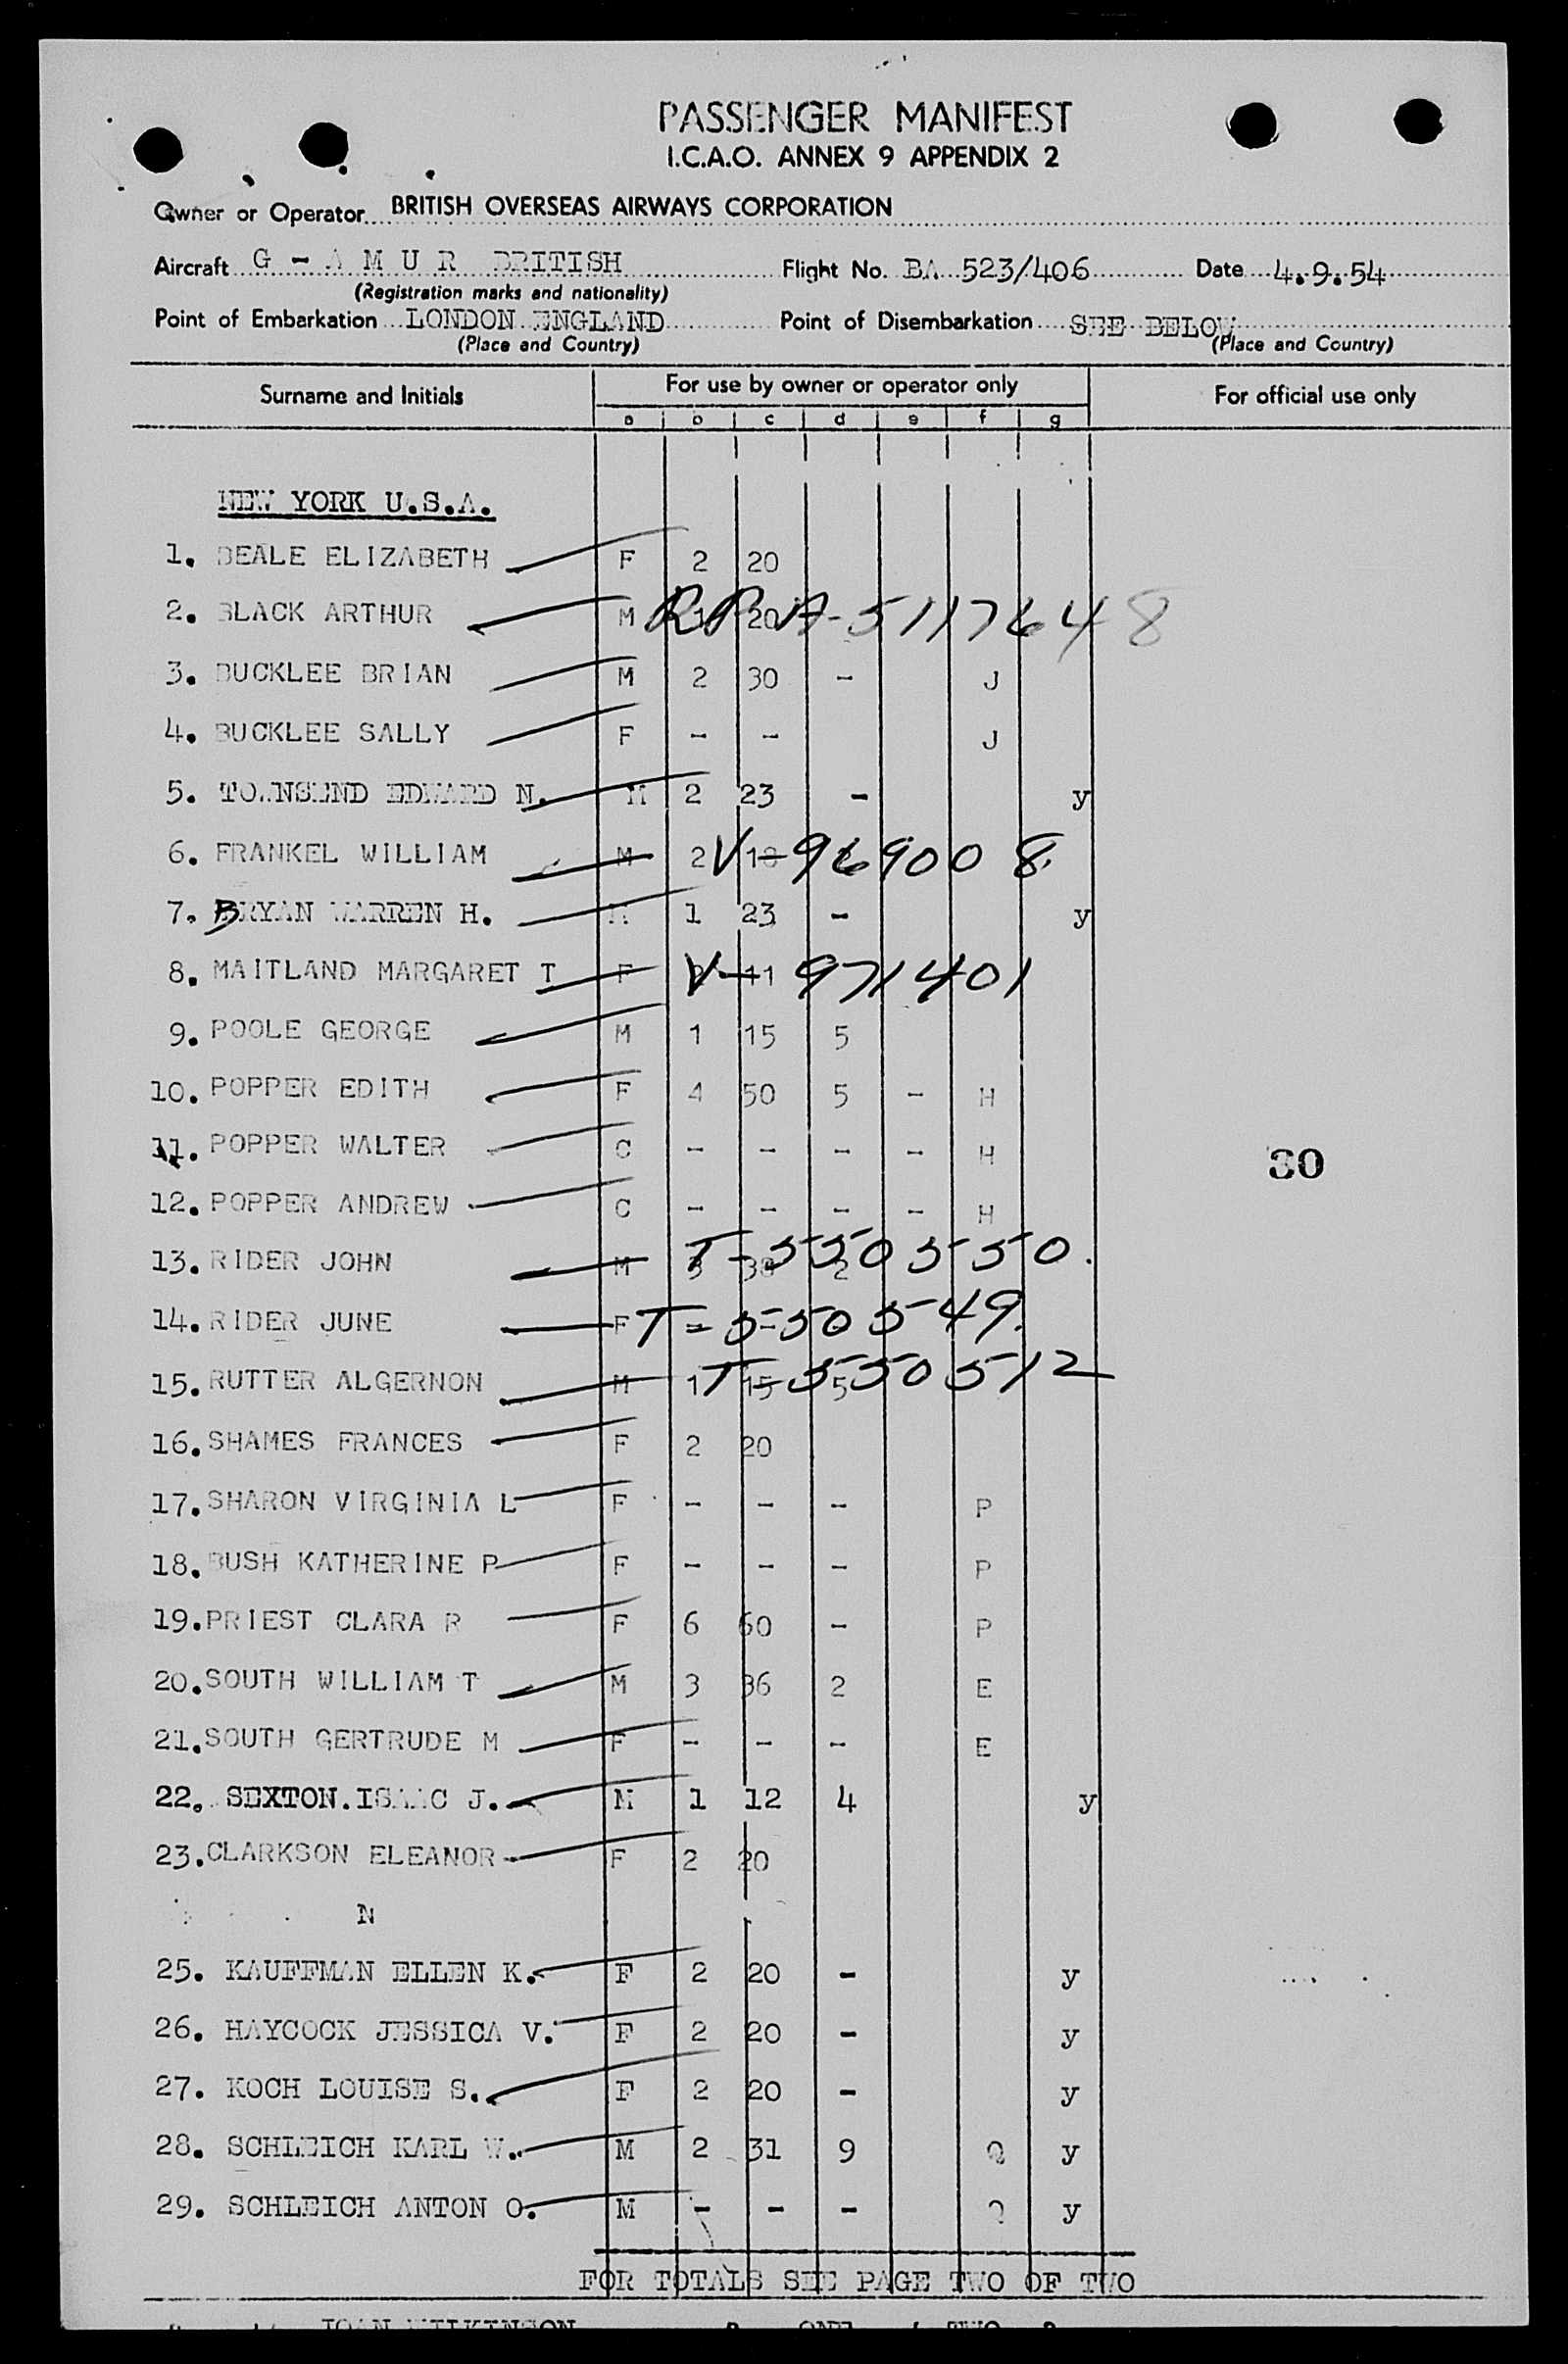 PASSENGER MANIFEST
I.C.A.O. ANNEX 9 APPENDIX 2
Owner or Operator BRITISH OVERSEAS AIRWAYS CORPORATION
Aircraft G - A M U R BRITISH Flight No. BA 523/406 Date 4.9.54
(Registration marks and nationality)
Point of Embarkation LONDON ENGLAND Point of Disembarkation SEE BELOW
(Place and Country) (Place and Country)
Surname and Initials For use by owner or operator only For official use only
a b c d e f g
NEW YORK U.S.A.
1. BEALE ELIZABETH F 2 20
2. BLACK ARTHUR M 1 20 RP A-5117648
3. BUCKLEE BRIAN M 2 30 - J
4. BUCKLEE SALLY F - - J
5. TOWNSEND EDWARD N. M 2 23 - y
6. FRANKEL WILLIAM M 2 18 V-969008.
7. BRYAN WARREN H. M 1 23 - y
8. MAITLAND MARGARET T F 2 11 V-971401
9. POOLE GEORGE M 1 15 5
10. POPPER EDITH F 4 50 5 - H
11. POPPER WALTER C - - - - H
12. POPPER ANDREW C - - - - H
13. RIDER JOHN M 3 38 2 T-5505550.
14. RIDER JUNE F - - T-5505549.
15. RUTTER ALGERNON M 1 15 5 T-5550512
16. SHAMES FRANCES F 2 20
17. SHARON VIRGINIA L F - - - P
18. BUSH KATHERINE P F - - - P
19. PRIEST CLARA R F 6 60 - P
20. SOUTH WILLIAM T M 3 36 2 E
21. SOUTH GERTRUDE M F - - - E
22. SEXTON.ISAAC J. M 1 12 4 y
23. CLARKSON ELEANOR F 2 20
N
25. KAUFFMAN ELLEN K. F 2 20 - y
26. HAYCOCK JESSICA V. F 2 20 - y
27. KOCH LOUISE S. F 2 20 - y
28. SCHLEICH KARL W. M 2 31 9 Q y
29. SCHLEICH ANTON O. M - - - Q y
30
FOR TOTALS SEE PAGE TWO OF TWO
JOAN WILKINSON ONE TWO